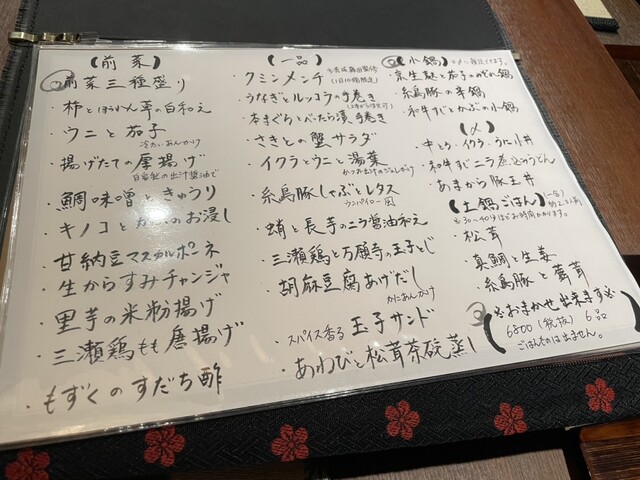 【前菜】
前菜三種盛り
・柿とほうれん草の白和え
・ウニと茄子
冷たいあんかけ
・揚げたての厚揚げ
自家製の出汁醤油で
・鯛味噌ときゅうり
・キノコと のお浸し
・甘納豆マスカルポーネ
・生からすみチャンジャ
・里芋の米粉揚げ
・三瀬鶏もも唐揚げ
・もずくのすだち酢
【一品】
クミンメンチ
(1日10個限定)
・うなぎとルッコラの手巻き
・本まぐろとべったら漬 手巻き
・さきとの蟹サラダ
・イクラとウニと湯葉
かつお出汁のジュレがけ
・糸島豚しゃぶとレタス
ウンパイロー風
・蛸と長芋のニラ醤油和え
・三瀬鶏と万願寺の玉子とじ
・胡麻豆腐あげだし
かにあんかけ
・スパイス香る 玉子サンド
・あわびと松茸茶碗蒸し
【小鍋】
・京生麩と茄子のみぞれ鍋
・糸島豚の辛鍋
・和牛すじとかぶの小鍋
【〆】
・中とろ・イクラ・うに小丼
・和牛すじニラ煮込みうどん
・あまから豚玉丼
【土鍋ごはん】(一合)
約2人前
※30〜40分ほどお時間かかります。
・松茸
・真鯛と生姜
・糸島豚と舞茸
※おまかせ出来ます※
6800(税抜) 6品
ごはんものは出ません。